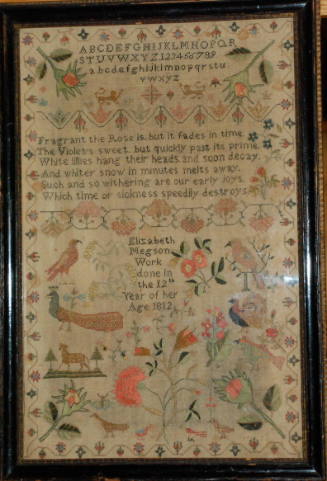 ABCDEFGHIJKLMNOPQR
STUVWXYZ123456789
abcdefghijklmnopqrstu
vwxyz
Fragrant the Rose is but it fades in time
The Violets sweet but quickly past its prime
White lillies hang their heads and soon decay
And whiter snow in minutes melts away
Such and so withering are our early joys
Which time or sickness speedily destroys
Elizabeth
Megson
Work
done in
the 12th
Year of her
Age 1812